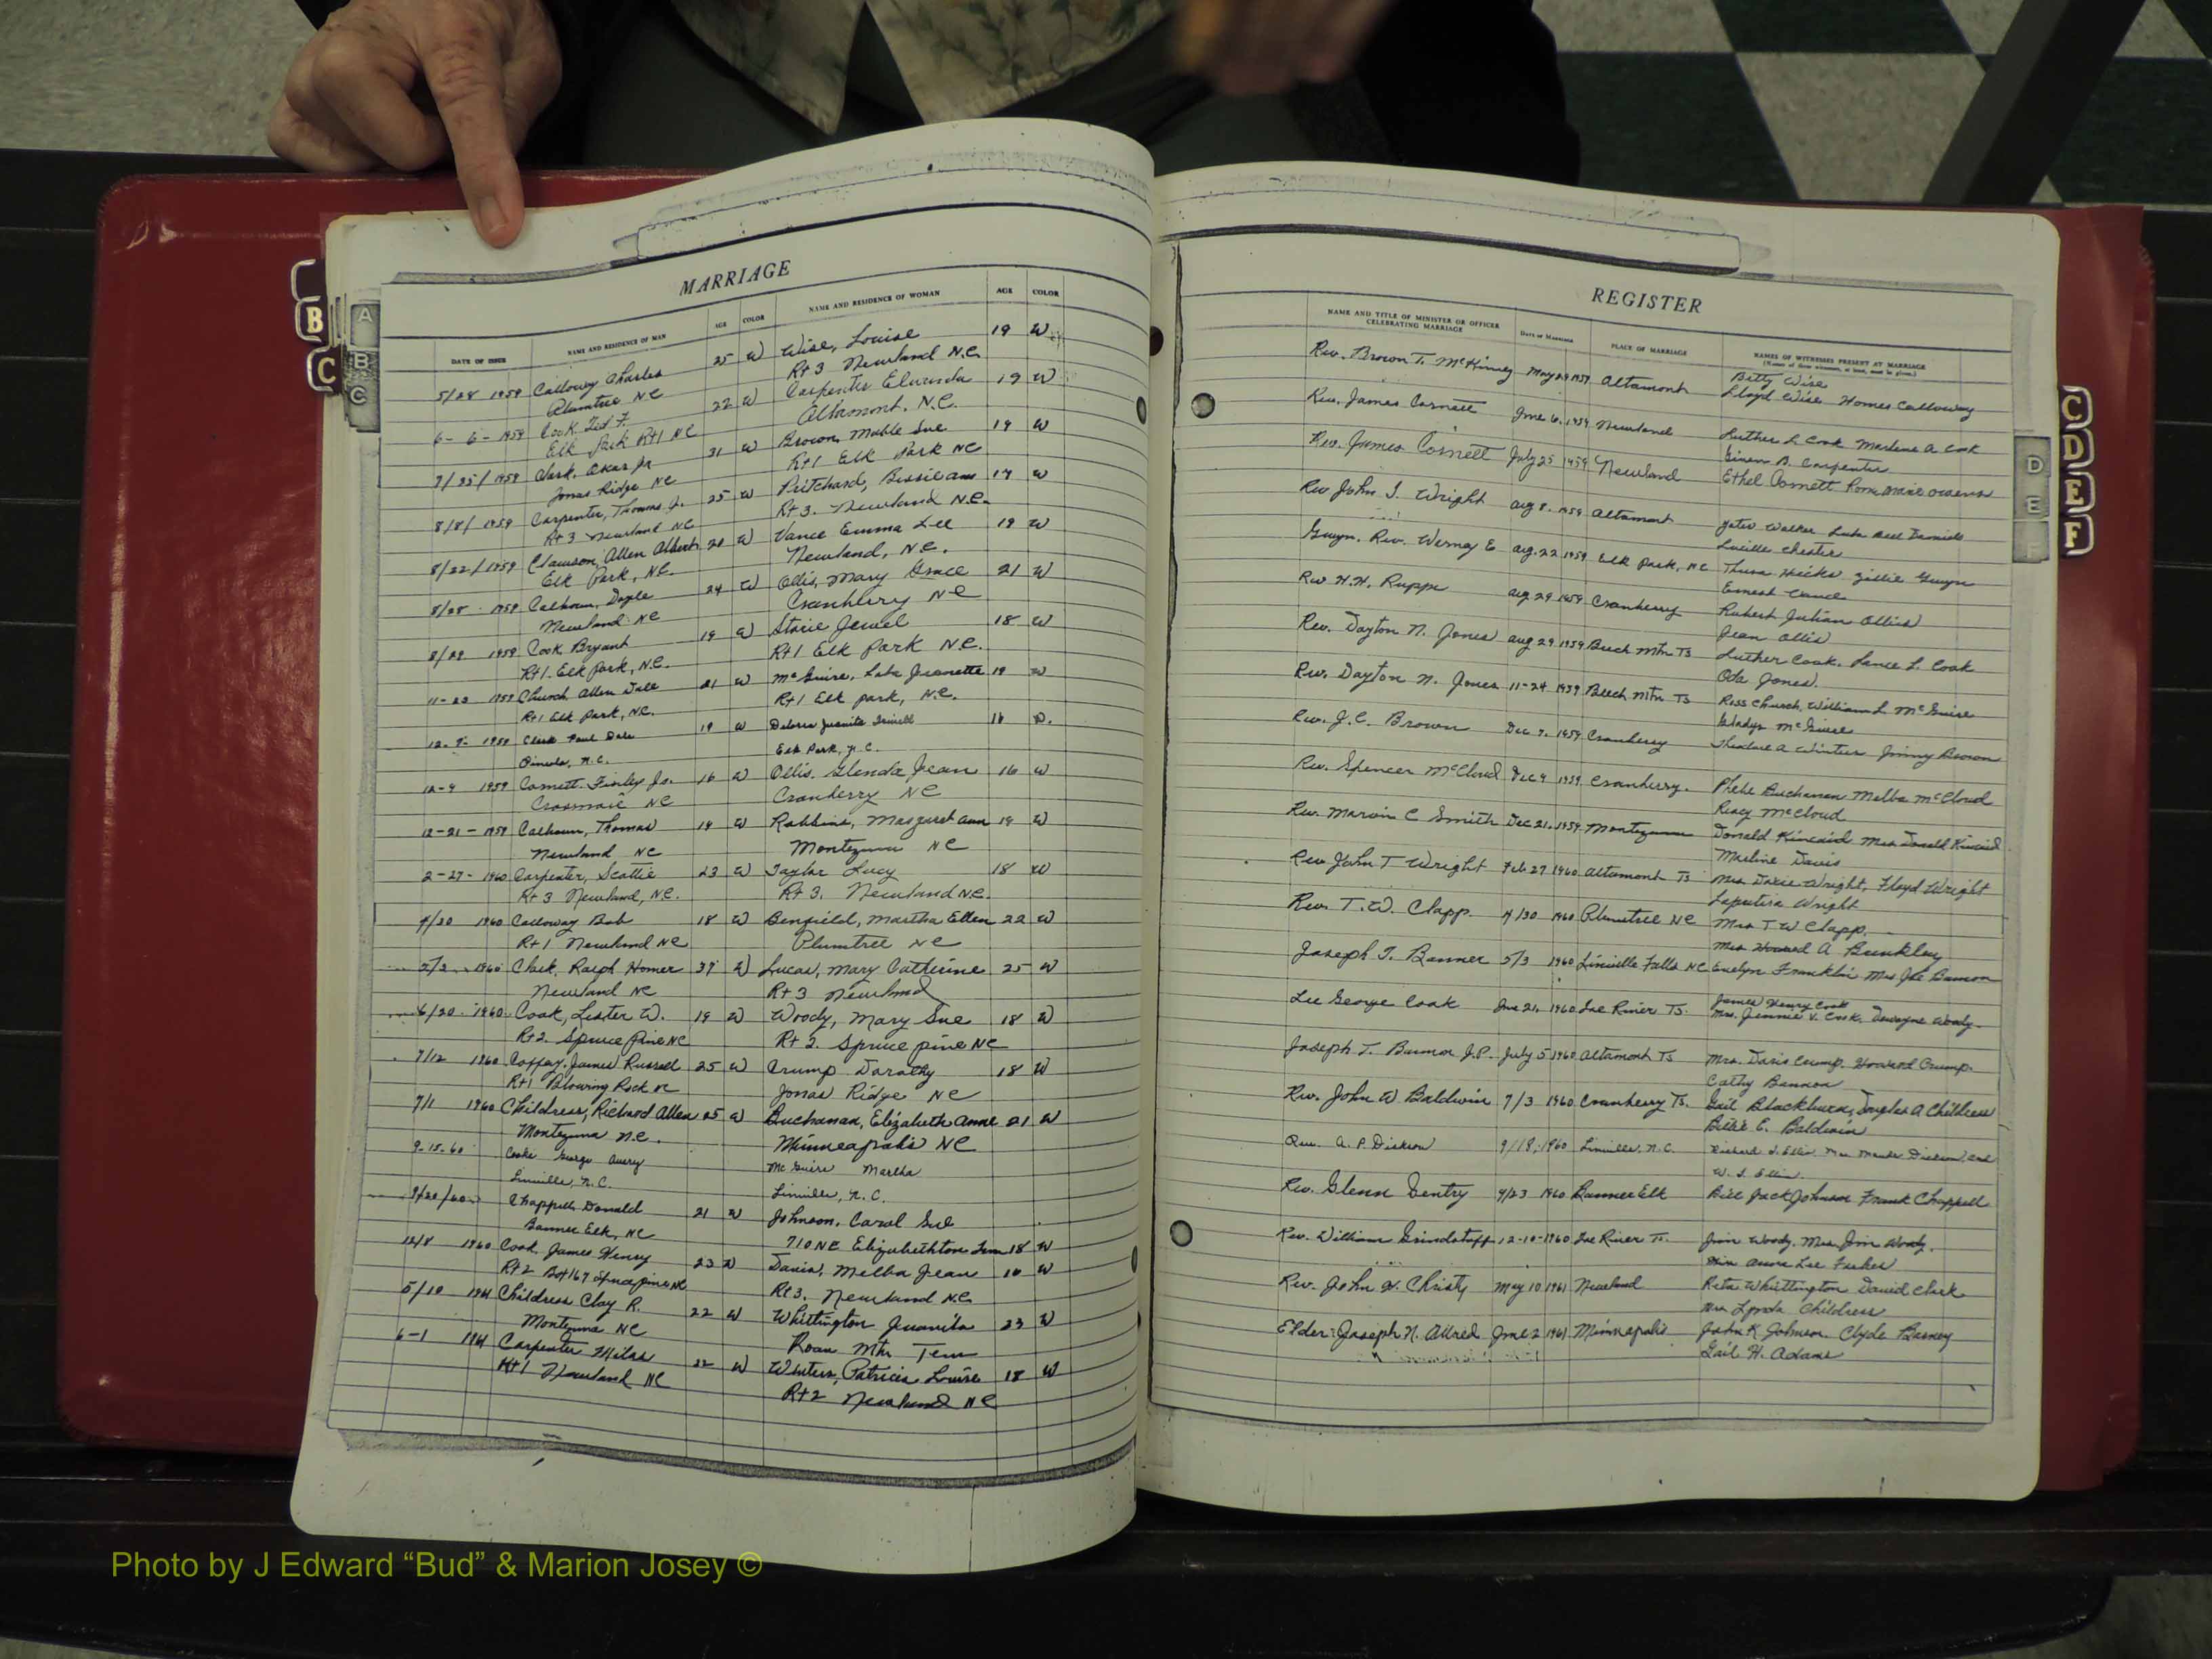 MARRIAGE
DATE OF ISSUE NAME AND RESIDENCE OF MAN AGE COLOR NAME AND RESIDENCE OF WOMAN AGE COLOR
5/28 1959 Calloway Charles 25 W Wise, Louise 19 W
Plumtree NC Rt 3 Newland N.C.
6-6-1959 Cook Ted F. 22 W Carpenter 19 W
Elk Park Rt 1 NC Altamont, N.C.
7/25/1959 Clark, Oscar Jr 31 W Brown, Mable Sue 19 W
Jonas Ridge NC Rt 1 Elk Park NC
8/8/1959 Carpenter, Thomas Jr. 25 W Pritchard, Bessie ann 17 W
Rt 3 Newland NC Rt 3. Newland N.C.
8/22/1959 Clawson, Allen Albert 20 W Vance Emma Lee 19 W
Elk Park, NC. Newland, N.C.
8/28 1959 Calhoun, Doyle 24 W Ollis, Mary Grace 21 W
Newland NC Cranberry NC
8/29 1959 Cook Bryant 19 W Jewel 18 W
Rt 1 Elk Park, N.C. Rt 1 Elk Park N.C.
11-23 1959 Church Allen Dale 21 W McGuire, Jeanette 19 W
Rt 1 Elk Park, N.C. Rt 1 Elk park, N.C.
12-9- 1959 Clark Paul Dale 19 W Juanita 16
Pineola, N.C. Elk Park, N.C.
12-9 1959 Cornett, Finley Jr. 16 W Ollis, Glenda Jean 16 W
Crossnore NC Cranberry NC
12-21-1959 Calhoun, Thomas 19 W Robbins, Margaret ann 19 W
Newland NC Montezuma NC
2-27-1960 Carpenter, Scottie 23 W Taylor Lucy 18 W
Rt 3 Newland, NC. Rt 3. Newland N.C.
4/30 1960 Calloway Bob 18 W Benfield, Martha Ellen 22 W
Rt 1 Newland NC Plumtree NC
5/2 1960 Clark, Ralph Homer 37 W Lucas, Mary Catherine 25 W
Newland NC Rt 3 Newland
6/20 1960 Cook, Lester W. 19 W Woody, Mary Sue 18 W
Rt 2. Spruce Pine NC Rt 2. Spruce pine NC
7/12 1960 Coffey, James Russell 25 W Crump Dorothy 18 W
Rt 1 Blowing Rock NC Jonas Ridge NC
7/1 1960 Childress, Richard Allen 25 W Buchanan, Elizabeth Anne 21 W
Montezuma N.C. Minneapolis NC
9-15-60 Cooke George Avery McGuire Martha
Linville, N.C. Linville, N.C.
9/20/60 Chappell Donald 21 W Johnson, Carol Sue
Banner Elk, NC 710 NE Elizabethton Tenn 18 W
12/8 1960 Cook, James Henry 23 W Davis, Melba Jean 18 W
Rt 2 Box 167 Spruce pine NC Rt 3. Newland N.C.
5/10 1961 Childress Clay R. 22 W Whittington Juanita 23 W
Montezuma NC Roan Mtn Tenn
6-1 1961 Carpenter Milas 22 W Winters, Patricia Louise 18 W
Rt 1 Newland NC Rt 2 Newland NC
REGISTER
NAME AND TITLE OF MINISTER OR OFFICER CELEBRATING MARRIAGE DATE OF MARRIAGE PLACE OF MARRIAGE NAMES OF WITNESSES PRESENT AT MARRIAGE
(Names of three witnesses, at least, must be given.)
Rev. Brown T. McKinney May 29 1959 Altamont Betty Wise
Lloyd Wise Homer Calloway
Rev. James Cornett June 6, 1959 Newland Luther L Cook Marlene A Cook
B. Carpenter
Rev. James Cornett July 25 1959 Newland Ethel Cornett Owens
Rev John T. Wright Aug 8, 1959 Altamont Walker
Lucille Chester
Gwyn, Rev. Verney E Aug. 22 1959 Elk Park, NC Hicks Gwyn
Ernest Vance
Rev H.H. Rupp Aug 29 1959 Cranberry Robert Julian Ollis
Jean Ollis
Rev. Dayton N. Jones Aug 29 1959 Beech Mtn TS Luther Cook. L. Cook
Oda Jones.
Rev. Dayton N. Jones 11-24 1959 Beech Mtn TS Ross Church, William L McGuire
Gladys McGuire
Rev. J.C. Brown Dec 9, 1959 Cranberry Theodore A Winters Jimmy Brown
Rev. Spencer McCloud Dec 9 1959 Cranberry. Phebe Buchanan Melba McCloud
McCloud
Rev. Marvin C Smith Dec 21, 1959 Montezuma Donald Kincaid Mrs Donald Kincaid
Davis
Rev John T Wright Feb 27 1960 Altamont Ts Mrs Wright, Floyd Wright
Wright
Rev. T.W. Clapp. 4/30 1960 Plumtree NC Mrs T W Clapp.
Mrs Howard A Brinkley
Joseph T. Banner 5/3 1960 Linville Falls NC Evelyn Franklin Mrs Joe
Lee George Cook June 21, 1960 Toe River TS. James Henry Cook
Mrs. Jennie V. Cook, Dewayne Woody.
Joseph T. J.P. July 5 1960 Altamont TS Mrs. Crump, Howard Crump.
Cathy
Rev. John W Baldwin 7/3 1960 Cranberry Ts. Gail Blackburn, Douglas A Childress
Billie C. Baldwin
Rev. A. P. Dickson 9/18/1960 Linville, N.C. Richard J. Ellis Mrs
W. J. Ellis.
Rev. Glenn Gentry 9/23 1960 Banner Elk Bill Jack Johnson Frank Chappell
Rev. William Grindstaff 12-10-1960 Toe River T. Jim Woody, Mrs Jim Woody.
Lee
Rev. John H. Christy May 10 1961 Newland Rita Whittington David Clark
Mrs Lynda Childress
Elder: Joseph N. Allred June 2 1961 Minneapolis John K Johnson Clyde
Gail H. Adams
A
B
C
B
C
D
E
F
C
D
E
F
Photo by J Edward “Bud” & Marion Josey ©